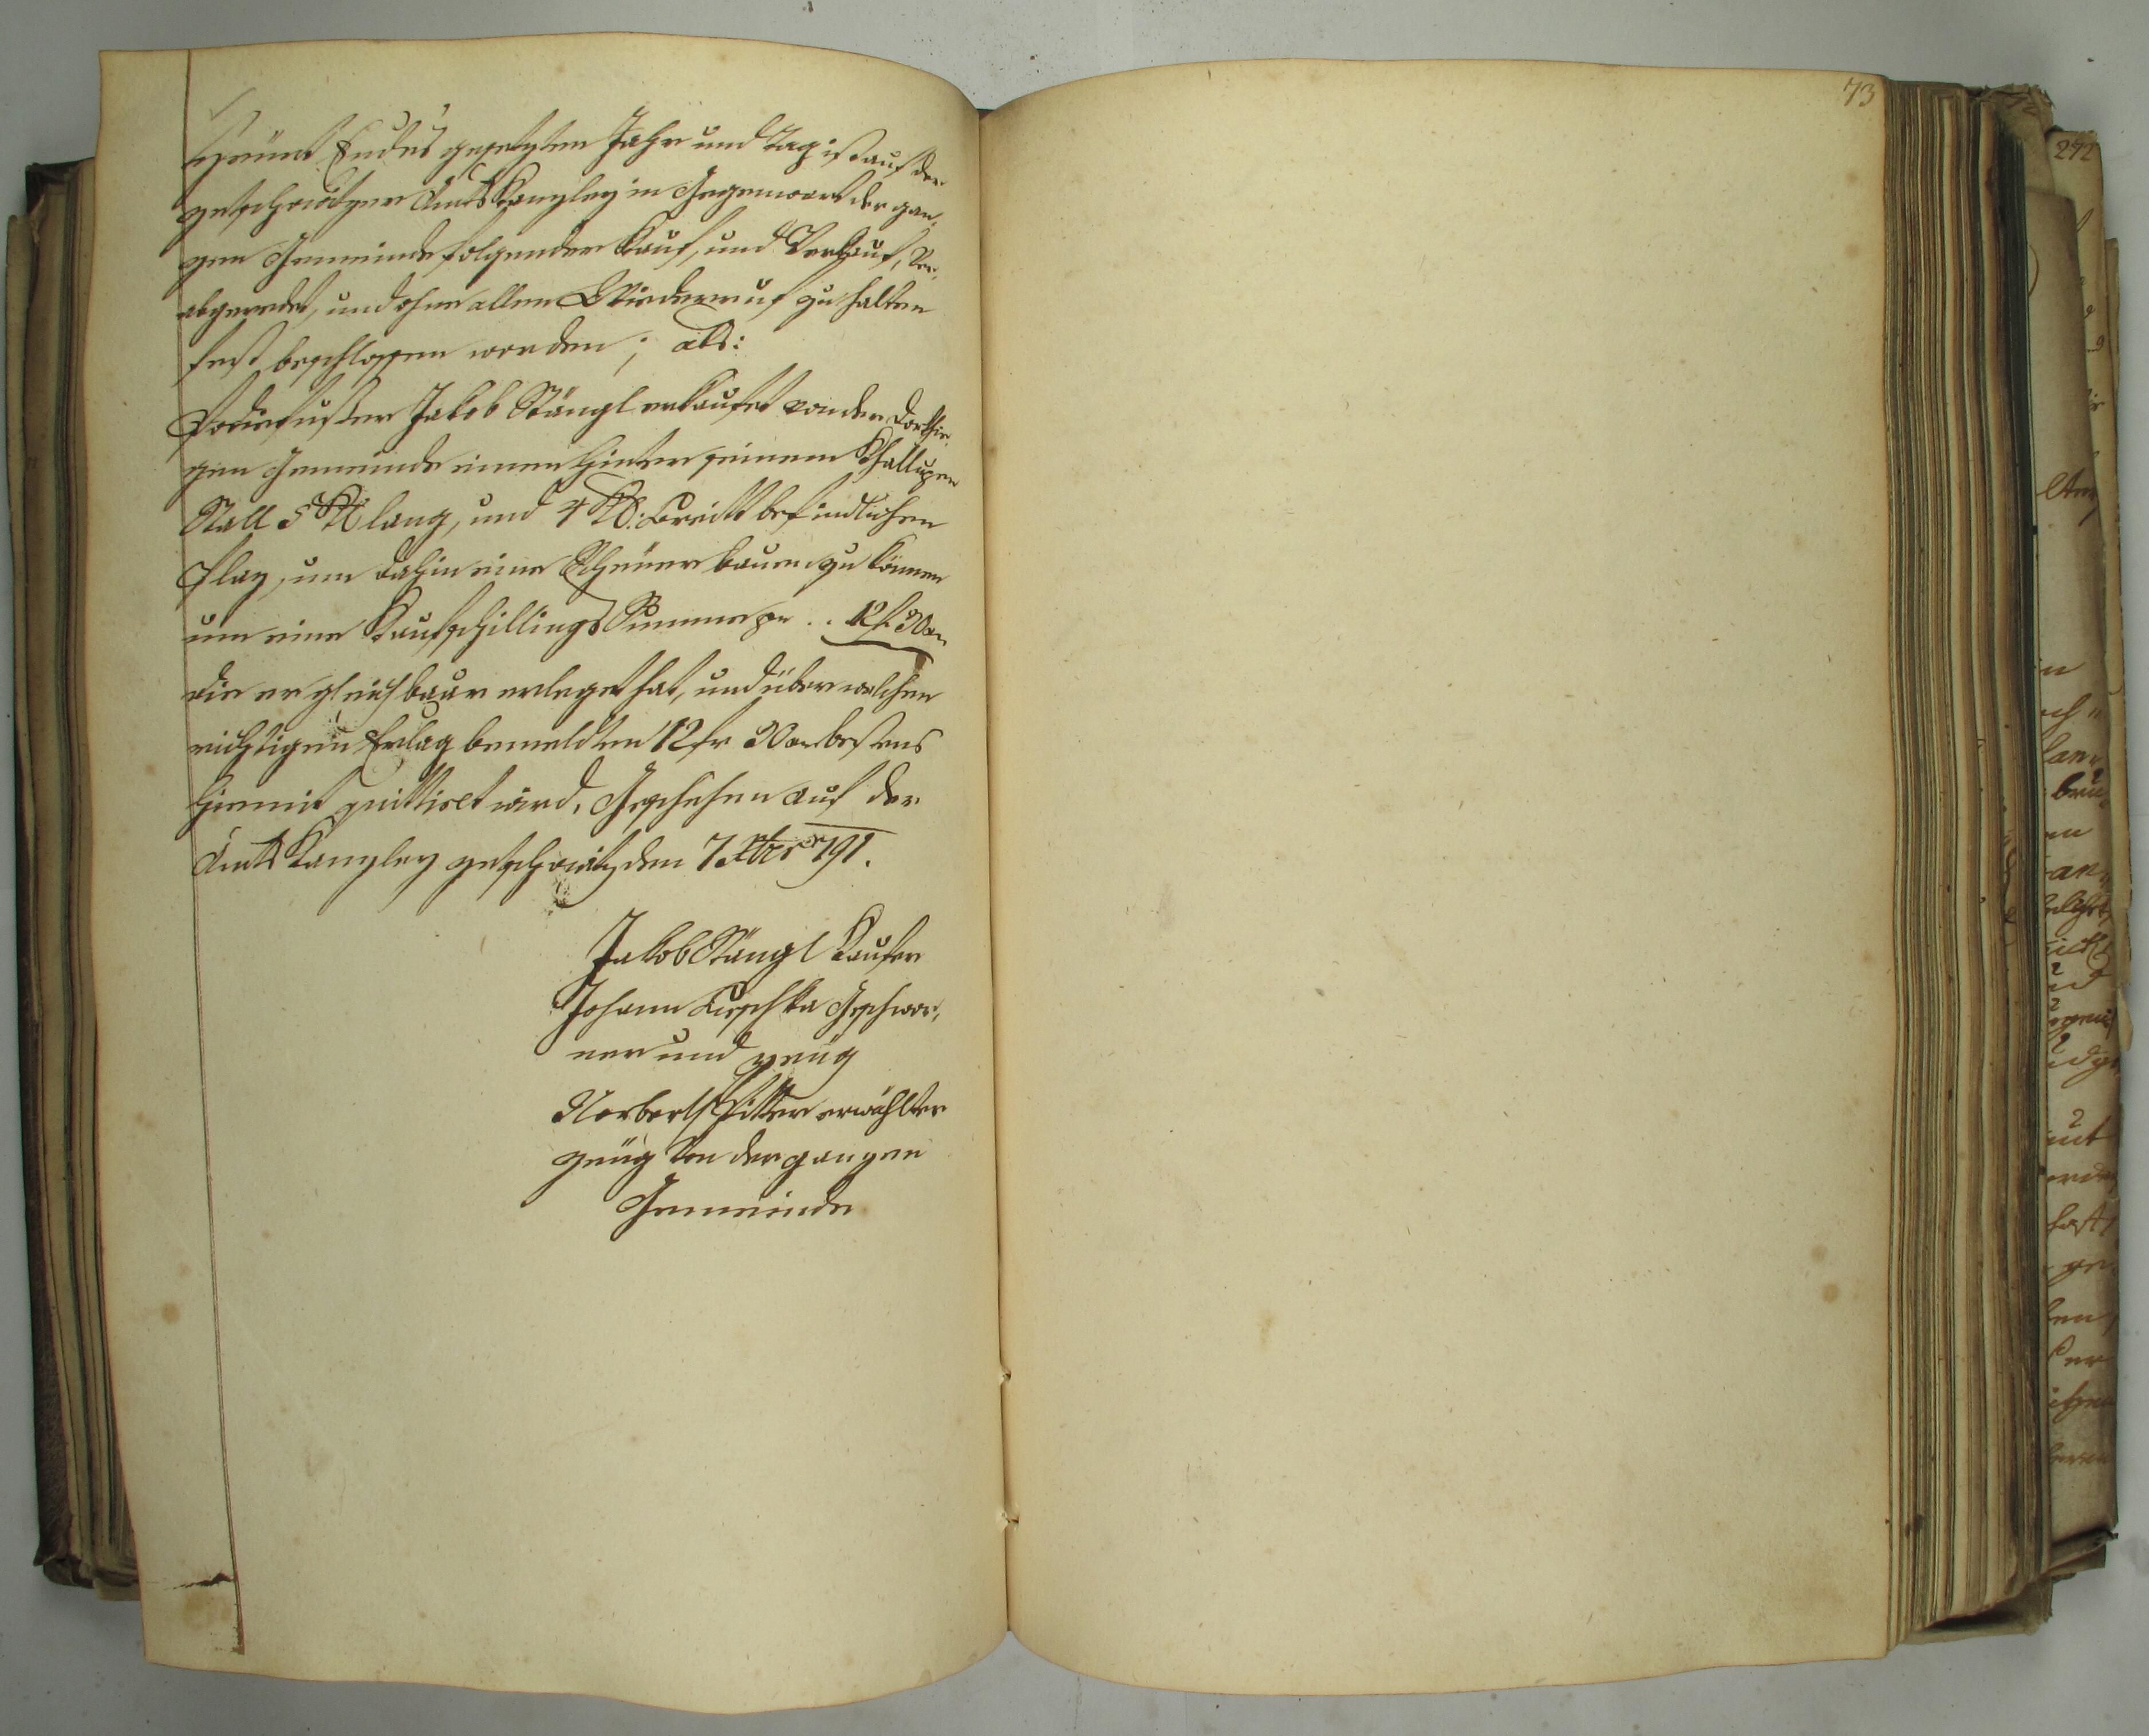 Heünt Endes gesetzten Jahr und Tag ist auf der
getschowitzer Amts Kanzley in Gegenwart der gan-
zen Gemeinde folgender Kauf, und Verkauf, ver-
abgeredet, und ohne allen Wiederruf zu halten
fest beschlossen worden; als:
Jakob Stängl erkaufet von der Dorthi-
gen Gemeinde einen hinter seinem Challupen
Stall 5 Kl lang, und 4 Kl: breitt befindlichen
Plaz, um dahin eine Scheuer bauen zu können
um eine Kaufschillings Summe pr .. 12 f
die er gleich baar erleget hat, und über welchen
richtigen Erlag bemeldten 12 fr bestens
hiemit quittiret wird. Geschehen auf der
Amts Kanzley getschowitz den 7. Xbr 791.
Jakob Stängl Kaufer
Johann Luschka Geschwor-
ner und zeüg
Norbert Pitter erwählter
zeüg von der ganzen
Gemeinde
73
272